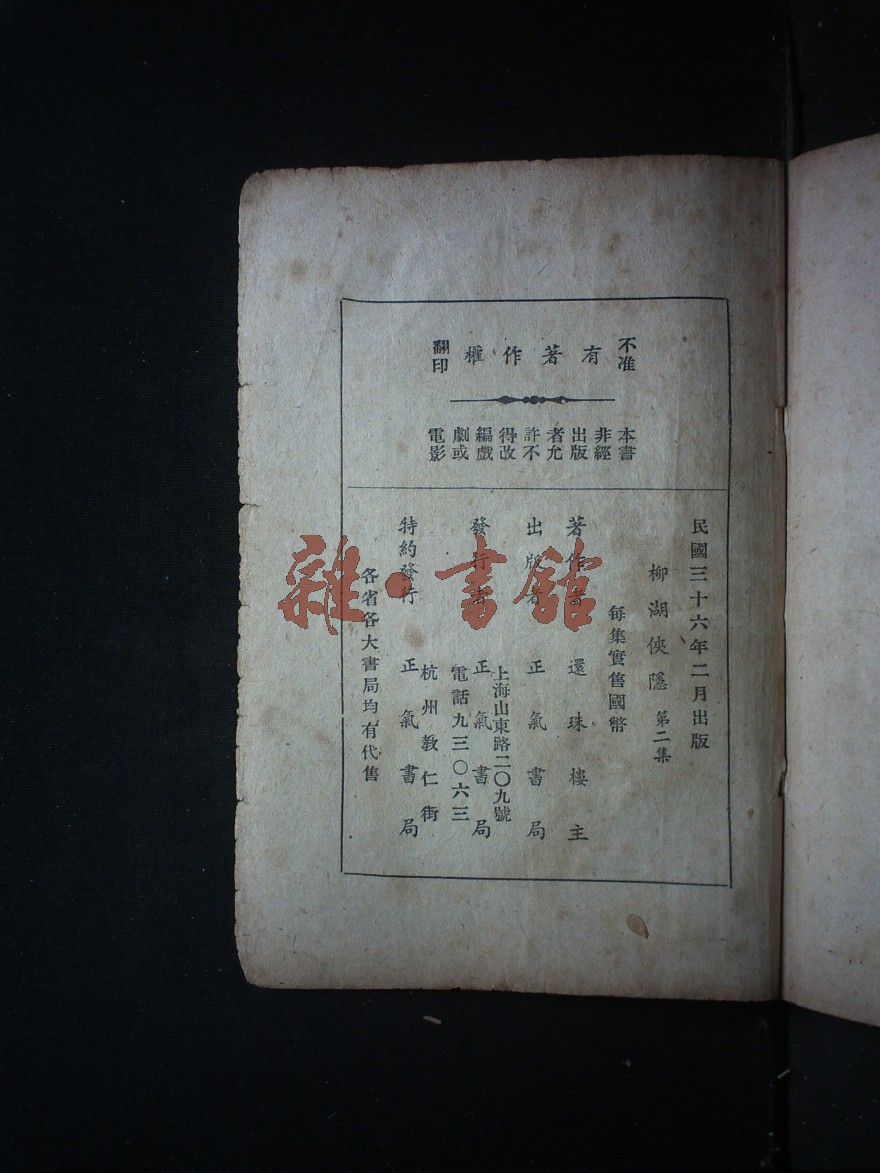 有著作權
不准
翻印
本書
非經
出版
者允
許不
得改
編戲
劇或
電影
民國三十六年二月出版
柳湖俠隱 第二集
每集實售國幣
著作者 還珠樓主
出版者 正氣書局
上海山東路二〇九號
發行者 正氣書局
電話九三〇六三
杭州教仁街
特約發行 正氣書局
各省各大書局均有代售
雜·書館